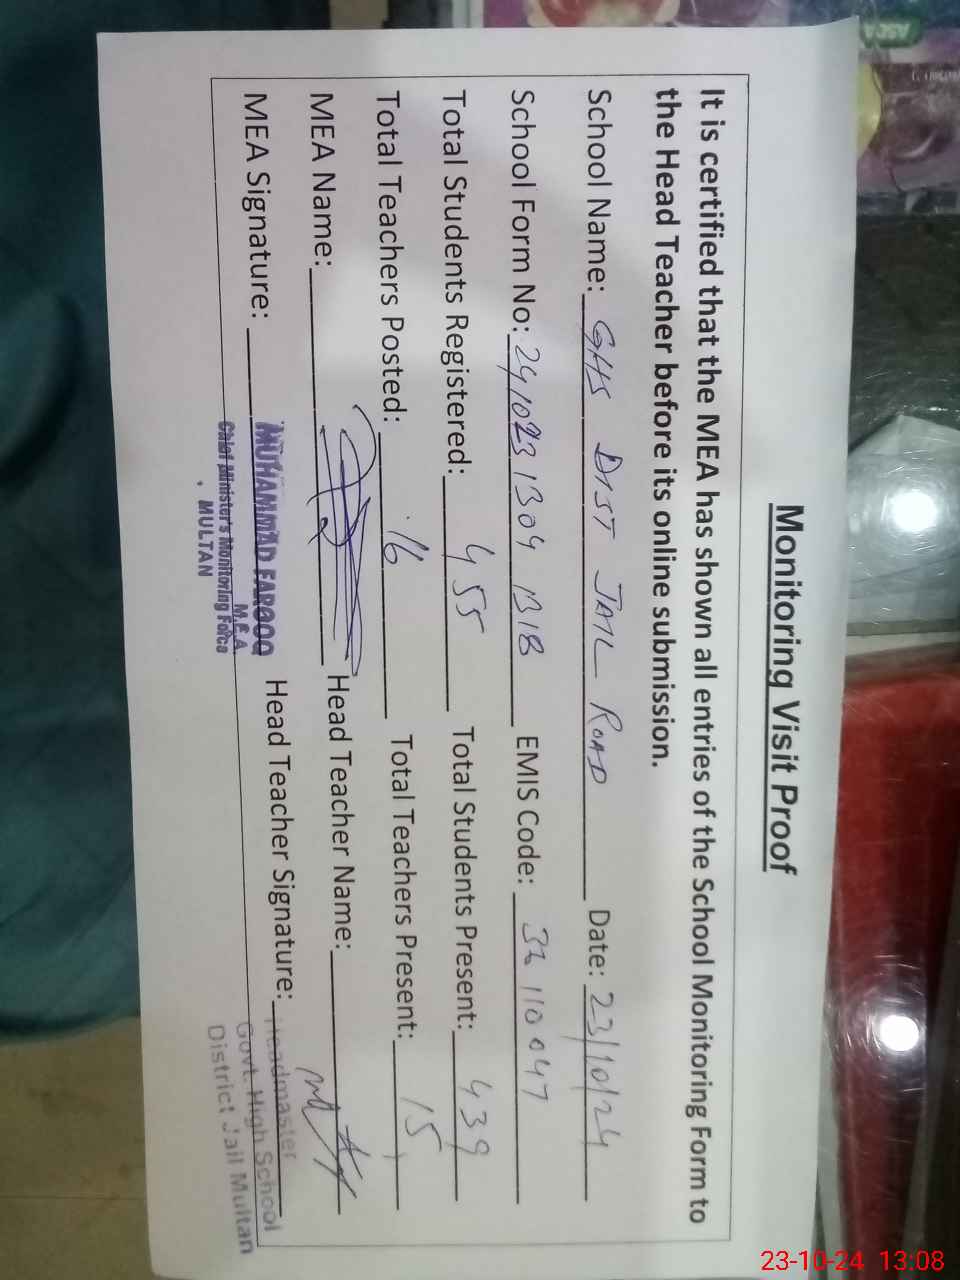 Monitoring Visit Proof
It is certified that the MEA has shown all entries of the School Monitoring Form to
the Head Teacher before its online submission.
School Name: GHS DIST JAIL ROAD Date: 23/10/24
School Form No: 241023 1304 B1B EMIS Code: 36110047
Total Students Registered: 455 Total Students Present: 439
Total Teachers Posted: 16 Total Teachers Present: 15
MEA Name: Head Teacher Name:
MEA Signature: MUHAMMAD FAROOQ Head Teacher Signature: Headmaster
M.E.A Govt. High School
Chief Minister's Monitoring Force District Jail Multan
MULTAN
23-10-24 13:08